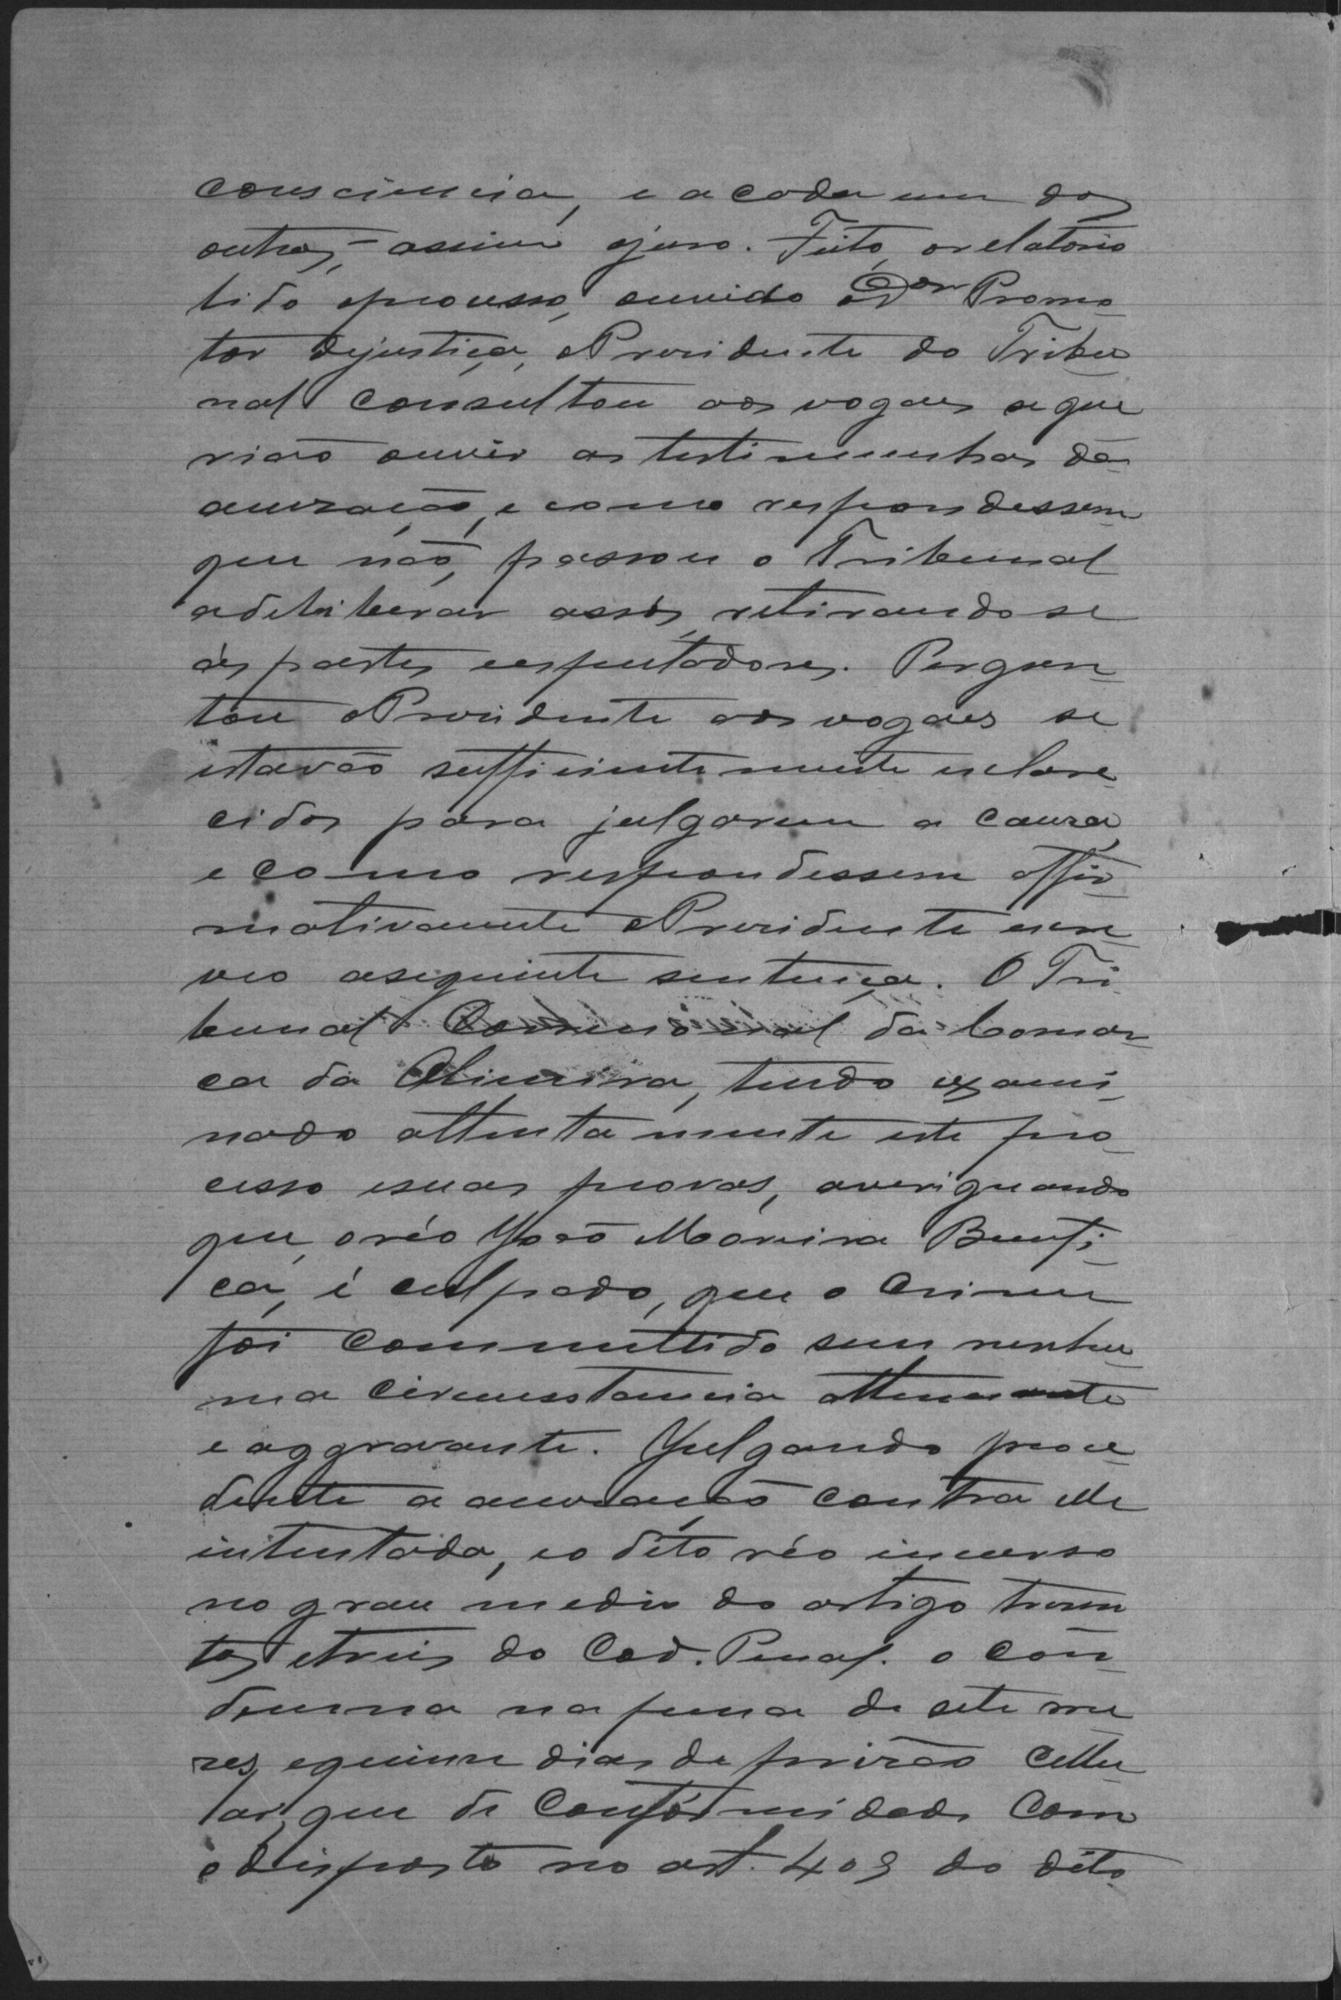 consciencia, e a cada um dos
outros, - assim o juro. Feito, o relatorio
lido o processo, ouvido o Dor Promo-
tor de justiça, o Prezidente do Tribu-
nal consultou aos vogaes se que-
rião ouvir as testimunhas da
accuzação, e como respondessem
que não, passou o Tribunal
a deliberar a sós, retirando se
ás partes e espectadores. Pergun-
tou o Prezidente aos vogaes se
estavão sufficientemente esclare-
cidos para julgarem a cauza,
e como respondessem affir-
mativamente o Prezidente escre-
veo a seguinte sentença. O Tri-
bunal Correccional da Comar-
ca da tendo exami-
nado attentamente este pro-
cesso e suas provas, averiguando
que, o réo João Moreira Benfi-
ca, é culpado, que o crime
foi committido sem nenhu-
ma circunstancia attenuante
e aggravante. Julgando proce-
dente a accuzação contra elle
intentada, e o dito réo incurso
no grau medio do artigo trezen-
tos e treis do Cod. Penal. o con-
demna na pena de sete me-
zes e quinze dias de prizão cellu-
lar, que de conformidade com
o disposto no art. 409 do dito